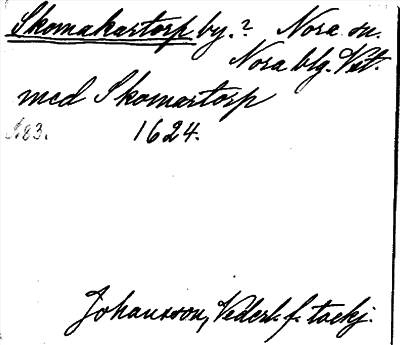 Skomakartorp by.? Nora sn.
Nora blg. Vst.
med Skomartorp
1624.
Johansson, Vederl. f. tackj.